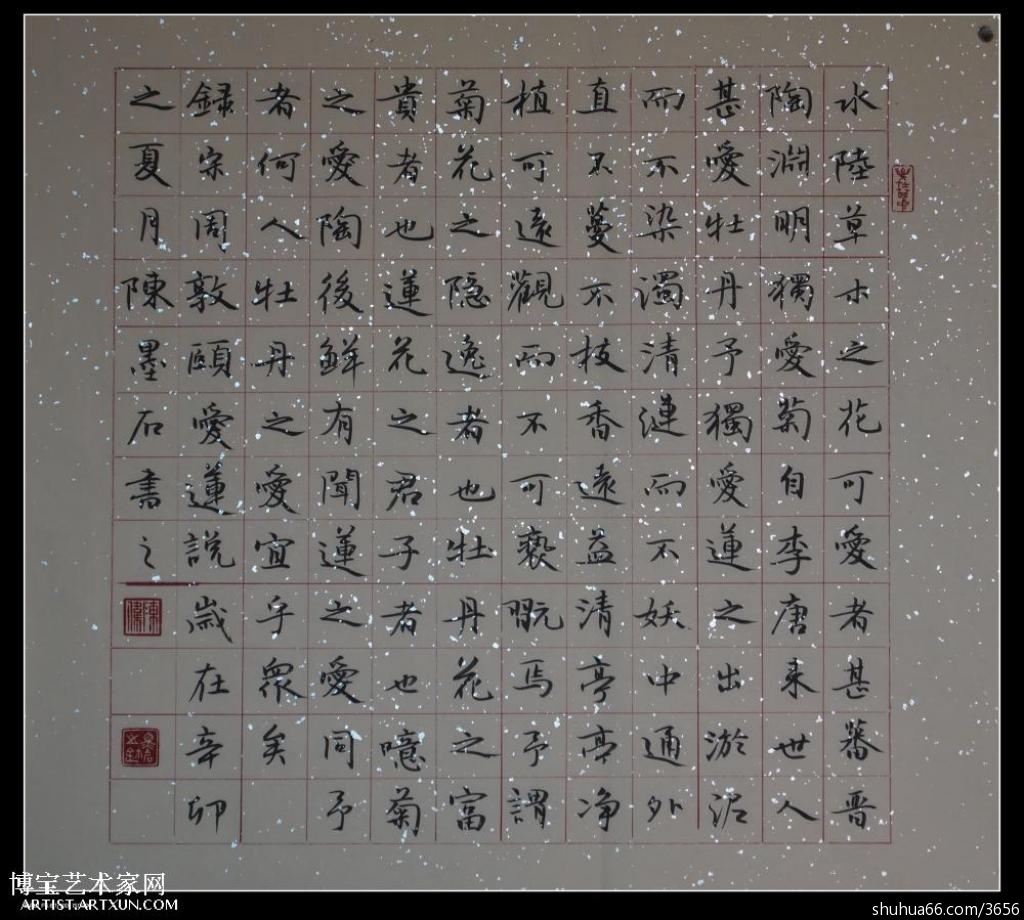 水陸草木之花可愛者甚蕃晋
陶淵明獨愛菊自李唐来世人
甚愛牡丹予獨愛蓮之出淤泥
而不染濁清漣而不妖中通外
直不蔓不枝香遠益清亭亭净
植可遠觀而不可褻翫焉予謂
菊花之隐逸者也牡丹花之富
貴者也蓮花之君子者也噫菊
之愛陶後鮮有聞蓮之愛同予
者何人牡丹之愛宜乎衆矣
録宋周敦頤愛蓮説歲在辛卯
之夏月陳墨石書之
博宝艺术家网
ARTIST.ARTXUN.COM
shuhua66.com/3656